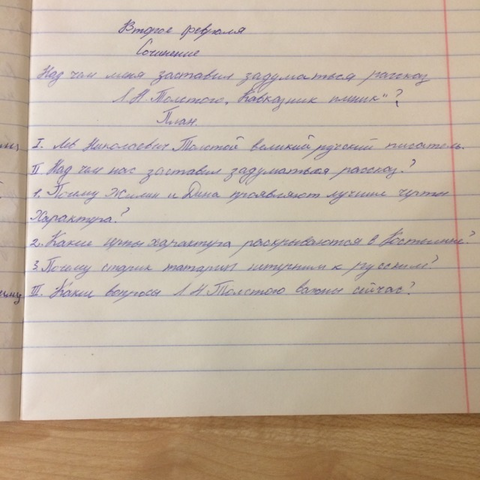 Второе февраля
Сочинение
Над чем меня заставил задуматься рассказ
Л.Н. Толстого „Кавказкик плник"?
План
I. Лев Николаевич Толстой великий русский писатель.
II. Над чем нас заставил задуматься рассказ?
1. Почему Жилин и Дина проявляют лучшие черты
характера?
2. Какие черты характера раскрываются в Костылине?
3. Почему старик татарин нетерпим к русским?
III. Какие вопросы Л.Н. Толстого важны сейчас?